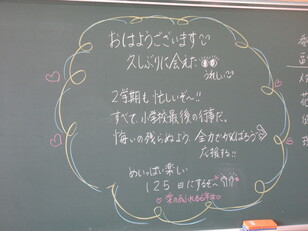 おはようございます
久しぶりに会えた
うれしい
2学期も忙しいぞ~!!
すべて、小学校最後の行事だ。
悔いの残らぬよう、全力でがんばろう
応援する!!
めいっぱい楽しい
125日にするぞ~